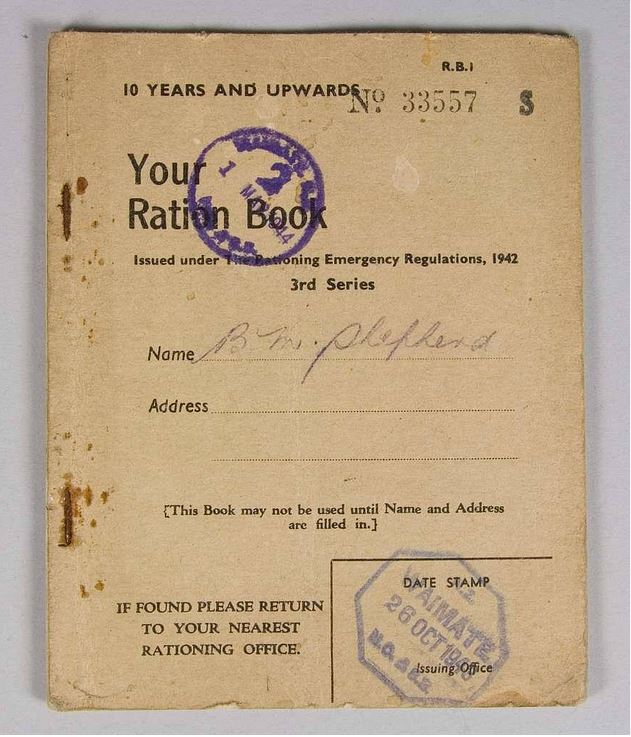 R.B.1
10 YEARS AND UPWARDS
Nº 33557 S
Your
Ration Book
2
1 MAY 1944
Issued under The Rationing Emergency Regulations, 1942
3rd Series
Name B. M. Shepherd
Address
[This Book may not be used until Name and Address
are filled in.]
IF FOUND PLEASE RETURN
TO YOUR NEAREST
RATIONING OFFICE.
DATE STAMP
WAIMATE
26 OCT
Issuing Office